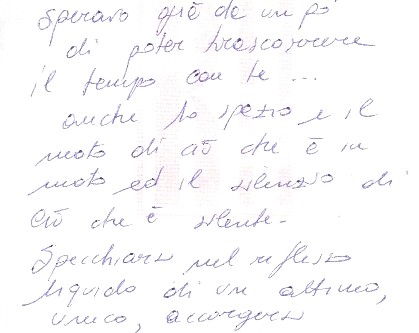 Speravo già da un pò
di poter trascorrere
il tempo con te ...
anche lo spazio e il
moto di ciò che è in
moto ed il silenzio di
ciò che è silente.
Specchiarsi nel riflesso
liquido di un attimo,
unico, accorgersi